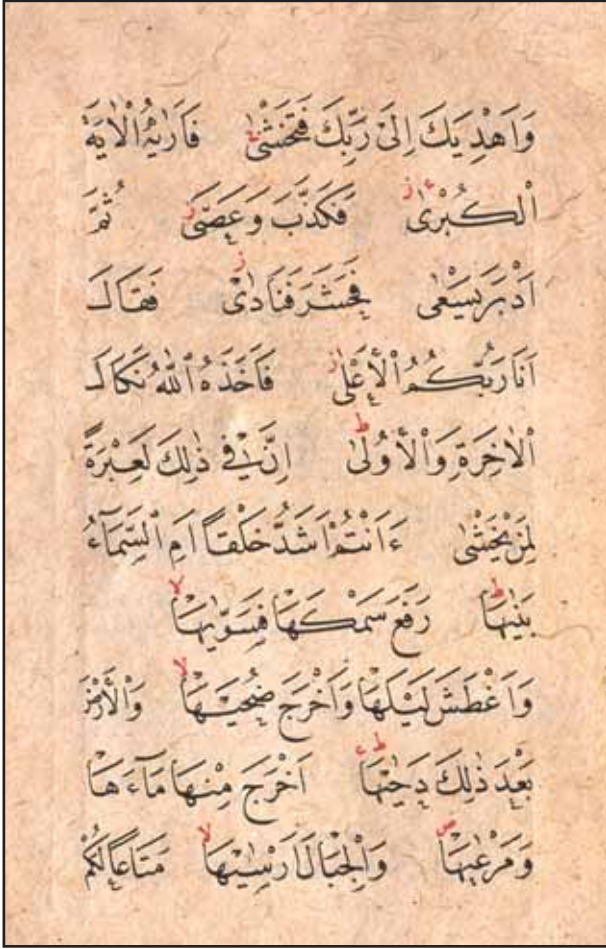 وَاَهْدِيَكَ اِلٰى رَبِّكَ فَتَخْشٰىۚ فَاَرٰيهُ الْاٰيَةَ
الْكُبْرٰىۘ فَكَذَّبَ وَعَصٰىۘ ثُمَّ
اَدْبَرَ يَسْعٰى فَحَشَرَ فَنَادٰىۘ فَقَالَ
اَنَا رَبُّكُمُ الْاَعْلٰىۘ فَاَخَذَهُ اللّٰهُ نَكَالَ
الْاٰخِرَةِ وَالْاُولٰىؕ اِنَّ فٖى ذٰلِكَ لَعِبْرَةً
لِمَنْ يَخْشٰى ءَاَنْتُمْ اَشَدُّ خَلْقًا اَمِ السَّمَٓاءُ
بَنٰيهَاؕ رَفَعَ سَمْكَهَا فَسَوّٰيهَاۙ
وَاَغْطَشَ لَيْلَهَا وَاَخْرَجَ ضُحٰيهَاۙ وَالْاَرْضَ
بَعْدَ ذٰلِكَ دَحٰيهَاؕ اَخْرَجَ مِنْهَا مَٓاءَهَا
وَمَرْعٰيهَاۖ وَالْجِبَالَ اَرْسٰيهَاۙ مَتَاعًا لَكُمْ